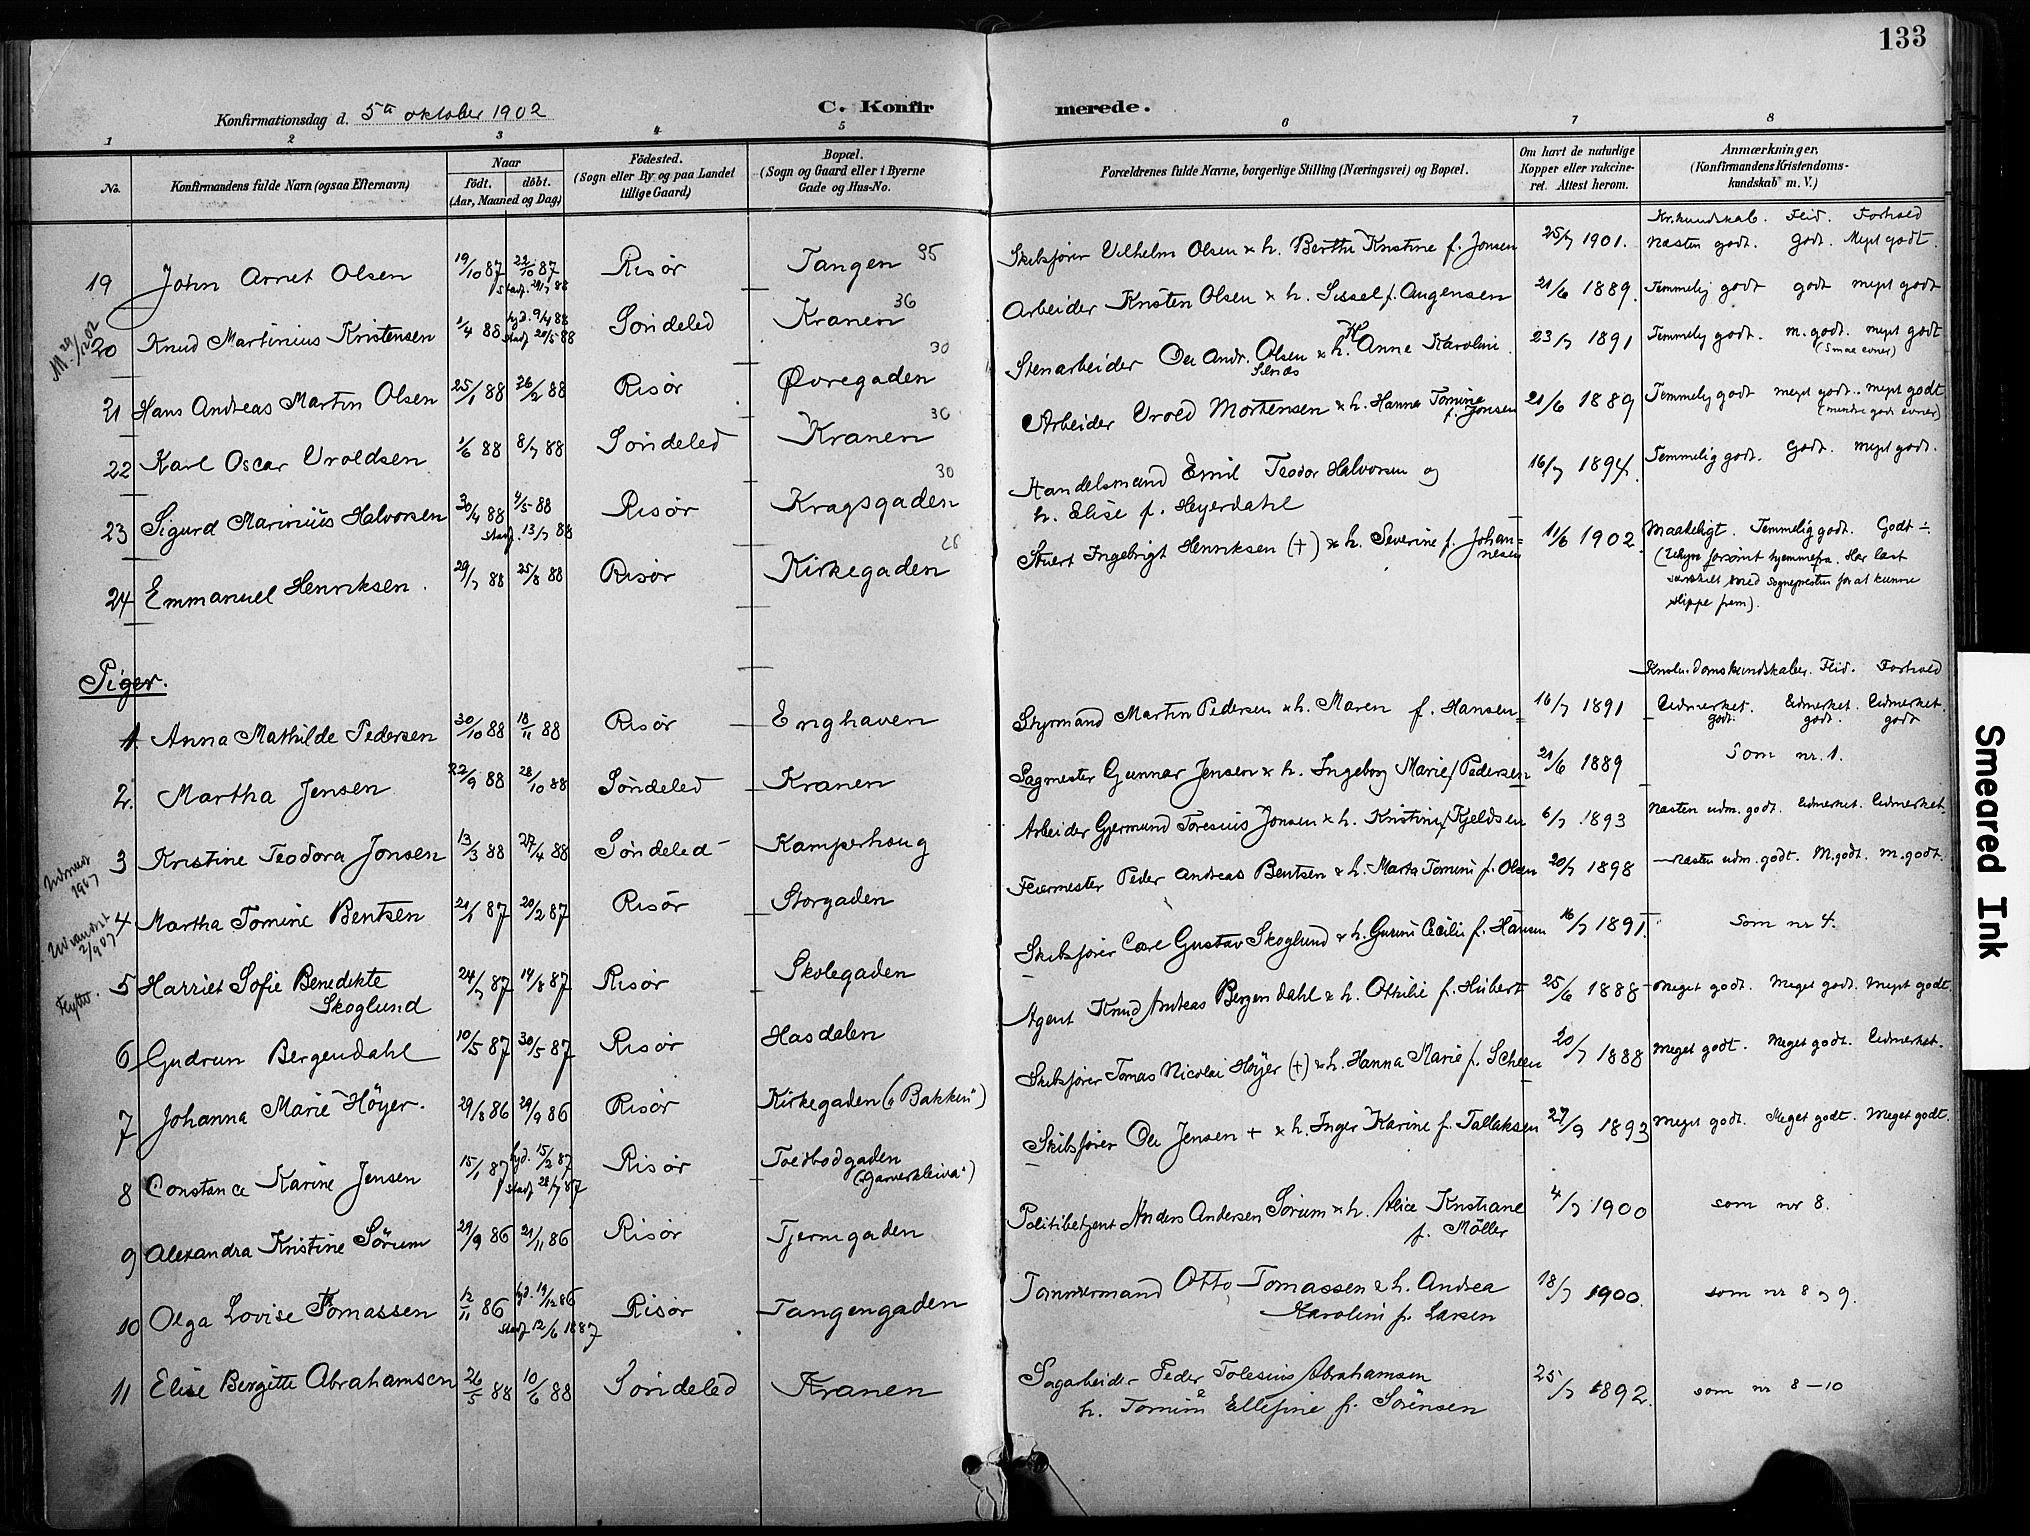 133
Konfirmationsdag d. 5te oktober 1902
C. Konfir merede.
1 2 3 4 5 6 7 8
No.
Konfirmandens fulde Navn (ogsaa Efternavn)
Naar
födt. döbt.
(Aar, Maaned og Dag)
Födested.
(Sogn eller By og paa Landet
tillige Gaard)
Bopæl.
(Sogn og Gaard eller i Byerne
Gade og Hus-No.
Forældrenes fulde Navne, borgerlige Stilling (Næringsvei) og Bopæl.
Om havt de naturlige
Kopper eller vakcine-
ret. Attest herom.
Anmærkninger,
(Konfirmandens Kristendoms-
kundskab m. V.)
Kr.kundskab. Flid. Forhold
19 John Arnet Olsen 19/10 87 22/10 87 Risør Tangen 35 Skibsfører Vilhelm Olsen & h. Berthe Kristine f. Jonsen 25/7 1901. Næsten godt. Godt. Meget godt.
20 Knud Martinius Kristensen 1/4 88 hjd. 9/4 88 Söndeled Kranen 36 Arbeider Kristen Olsen & h. Sissel f. Augensen 21/6 1889. Temmelig godt godt meget godt
stadf. 20/5 88
21 Hans Andreas Martin Olsen 25/1 88 26/2 88 Risør Øvregaden 30 Stenarbeider Ole Andr. Olsen & h. Anne Karoline 23/7 1891 Temmelig godt. m. godt. meget godt
(smaa evner)
22 Karl Oscar Uroldsen 1/6 88 8/7 88 Söndeled Kranen 30 Arbeider Urold Mortensen & h. Hanna Tomine f. Jonsen 21/6 1889 Temmelig godt meget godt. meget godt
(mindre gode evner)
23 Sigurd Marinius Halvorsen 30/4 88 4/5 88 Risør Kragsgaden 30 Handelsmand Emil Teodor Halvorsen og 16/7 1894. Temmelig godt. Godt. meget godt.
stadf. 13/7 88 h. Elise f. Heyerdahl
24 Emmanuel Henriksen. 29/7 88 25/8 88 Risør Kirkegaden 28 Stuert Ingebrigt Henriksen (+) & h. Severine f. Johan=nesen 11/6 1902. Maadeligt. Temmelig godt. Godt ÷
(Uhyre forsømt hjemmefra. Har læst
særskilt med sognepresten for at kunne
slippe frem).
Piger.
Kristendomskundskaber. Flid. Forhold
1. Anna Mathilde Pedersen 30/10 88 18/11 88 Risør Enghaven Styrmand Martin Pedersen & h. Maren f. Hansen 16/7 1891 Udmerket godt. Udmerket godt. Udmerket godt
2. Martha Jensen 22/9 88 28/10 88 Söndeled Kranen Sagmester Gunnar Jensen & h. Ingeborg Marie f. Pedersen 21/6 1889 Som nr. 1.
3 Kristine Teodora Jonsen 13/3 88 27/4 88 Söndeled Kamperhoug Arbeider Gjermund Toresius Jonsen & h. Kristine f. Kjeldsen 6/7 1893 Næsten udm. godt. Udmerket. Udmerket.
4 Martha Tomine Bentsen 21/1 87 20/2 87 Risør Storgaden Feiermester Peder Andreas Bentsen & h. Marta Tomine f. Olsen 20/7 1898 Næsten udm. godt. M. godt. m. godt.
Udvandret
2/9 07
5 Harriet Sofie Benedikte 24/7 87 14/8 87 Risør Skolegaden Skibsfører Carl Gustav Skoglund & h. Gurine Cecilie f. Hansen 16/7 1891. Som nr 4.
Skoglund
Flyttet.
6 Gudrun Bergendahl 10/5 87 30/5 87 Risør Hasdalen Agent Knud Andreas Bergendahl & h. Ottilie f. Hubert 25/6 1888 Meget godt. Meget godt. Meget godt.
7 Johanna Marie Höyer. 29/8 86 29/9 86 Risør Kirkegaden („Bakken“) Skibsfører Tomas Nicolai Höyer (+) & h. Hanna Marie f. Scheen 20/7 1888 Meget godt. Meget godt. Udmerket.
8 Constance Karine Jensen 15/1 87 hjd. 15/2 87 Risør Toldbodgaden Skibsfører Ole Jensen + & h. Inger Karine f. Tallaksen 27/9 1893 Meget godt. Meget godt. Meget godt.
stadf. 28/7 87 („Garverkleiva“)
9 Alexandra Kristine Sörum 29/9 86 21/11 86 Risør Tjerngaden Politibetjent Anders Andersen Sörum & h. Alice Kristiane 4/7 1900 som nr 8.
f. Möller
10 Olga Lovise Tomassen 12/11 86 hjd. 19/12 86 Risør Tangengaden Tømmermand Otto Tomassen & h. Andrea 18/7 1900. som nr 8 og 9.
stadf 12/6 1887 Karoline f. Larsen
11 Elise Bergitte Abrahamsen 26/5 88 10/6 88 Söndeled Kranen Sagarbeider Peder Tolesius Abrahamsen 25/7 1892. som nr 8-10
h. Tomine Ellefine f. Sörensen
Smeared Ink